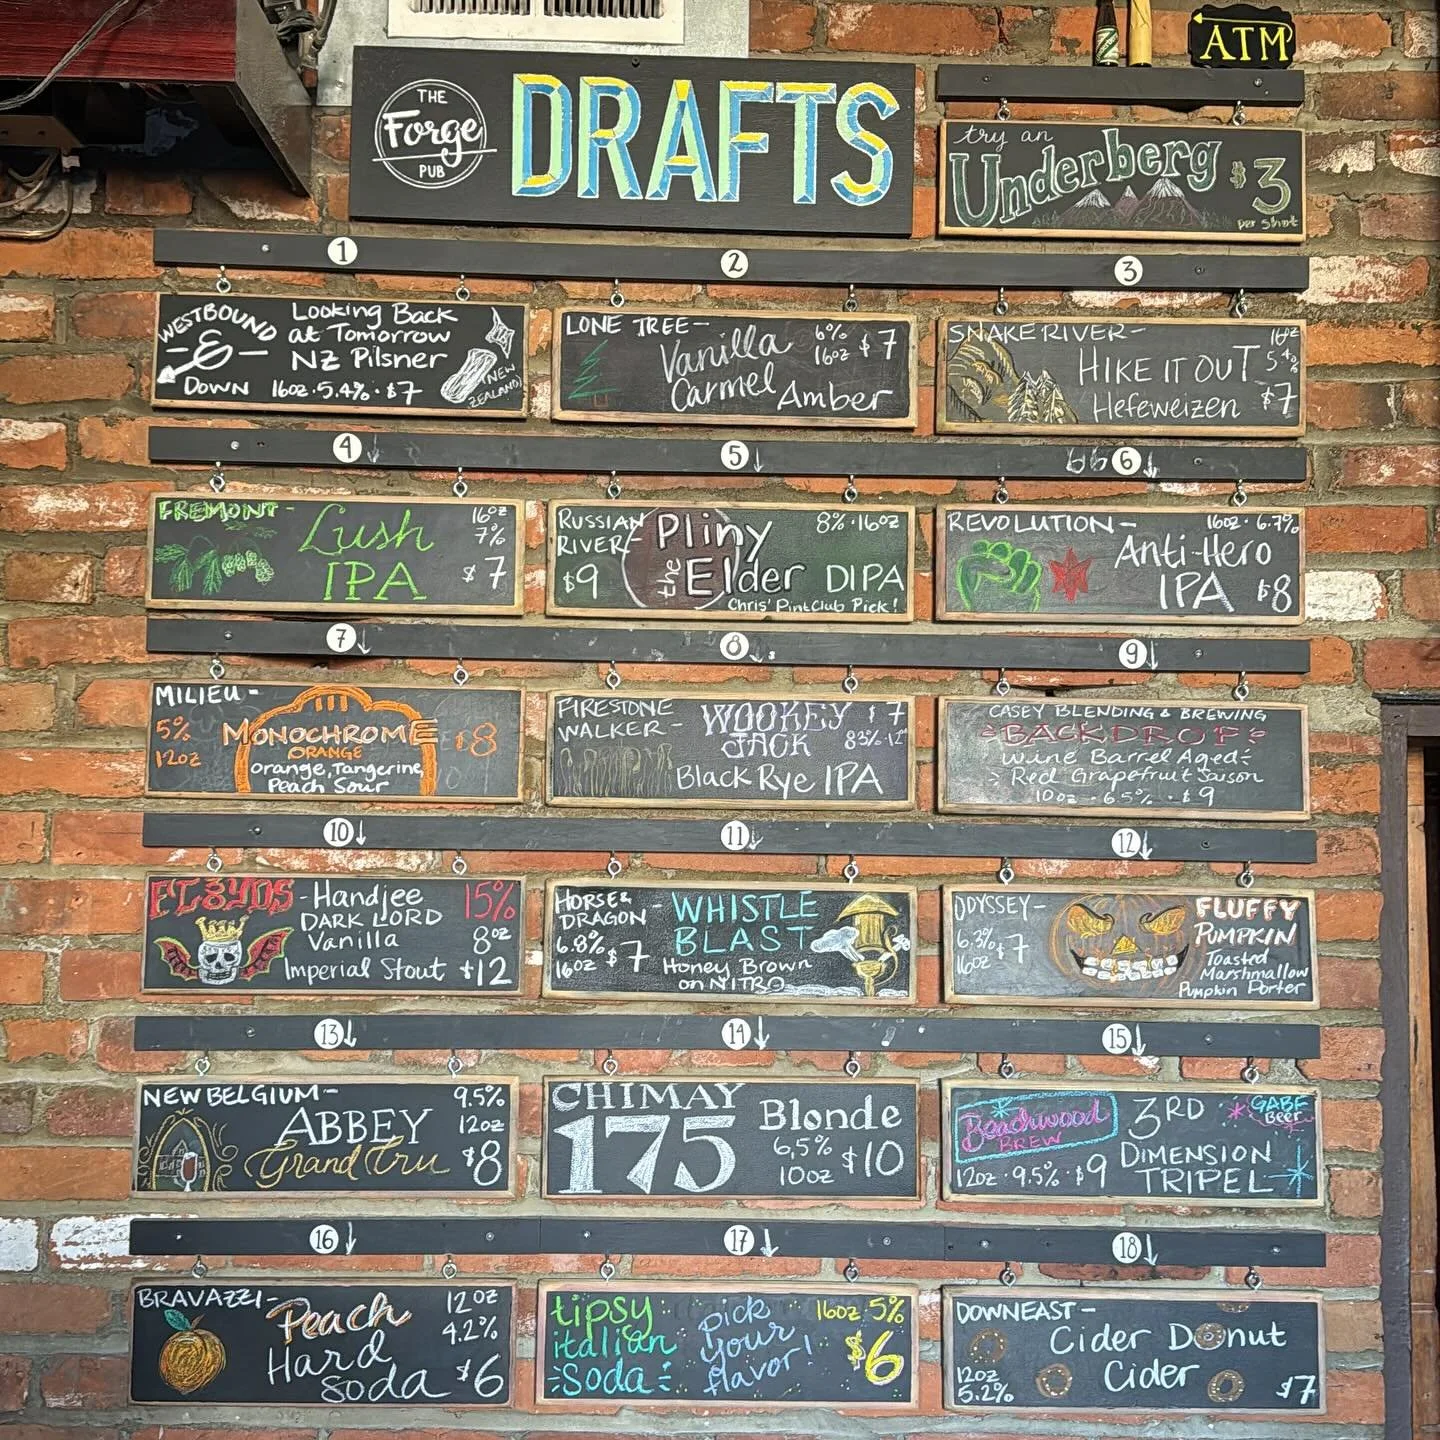 ATM
THE
Forge
PUB
DRAFTS
try an
Underberg $3
per shot
1
2
3
WESTBOUND
&
DOWN
Looking Back
at Tomorrow
NZ Pilsner
16oz·5.4%·$7
(NEW
ZEALAND)
LONE TREE-
Vanilla
Carmel Amber
6%
16oz $7
SNAKE RIVER-
HIKE IT OUT
Hefeweizen
16oz
5.4%
$7
4
5
6
FREMONT-
Lush
IPA
16oz
7%
$7
RUSSIAN
RIVER-
$9
Pliny
the Elder DIPA
8%·16oz
Chris' PintClub Pick!
REVOLUTION-
16oz·6.7%
Anti-Hero
IPA $8
7
8
9
MILIEU-
5%
12oz
MONOCHROME
ORANGE
Orange, Tangerine,
Peach Sour
$8
FIRESTONE
WALKER-
WOOKEY
JACK
Black Rye IPA
$7
8.3%·12oz
CASEY BLENDING & BREWING
BACKDROP
Wine Barrel Aged
Red Grapefruit Saison
10oz·6.5%·$9
10
11
12
FL3YDS-Handjee
DARK LORD
Vanilla
Imperial Stout
15%
8oz
$12
HORSE &
DRAGON-
6.8%
16oz $7
WHISTLE
BLAST
Honey Brown
on NITRO
ODYSSEY-
6.3%
16oz $7
FLUFFY
PUMPKIN
Toasted
Marshmallow
Pumpkin Porter
13
14
15
NEW BELGIUM-
ABBEY
Grand Cru
9.5%
12oz
$8
CHIMAY
175
Blonde
6.5%
10oz $10
Beachwood
BREW
12oz·9.5%·$9
3RD
DIMENSION
TRIPEL
GABF
Beer
16
17
18
BRAVAZZI-
Peach
Hard
Soda
12oz
4.2%
$6
tipsy
italian
Soda
pick
your
flavor!
16oz 5%
$6
DOWNEAST-
Cider Donut
Cider
12oz
5.2%
$7